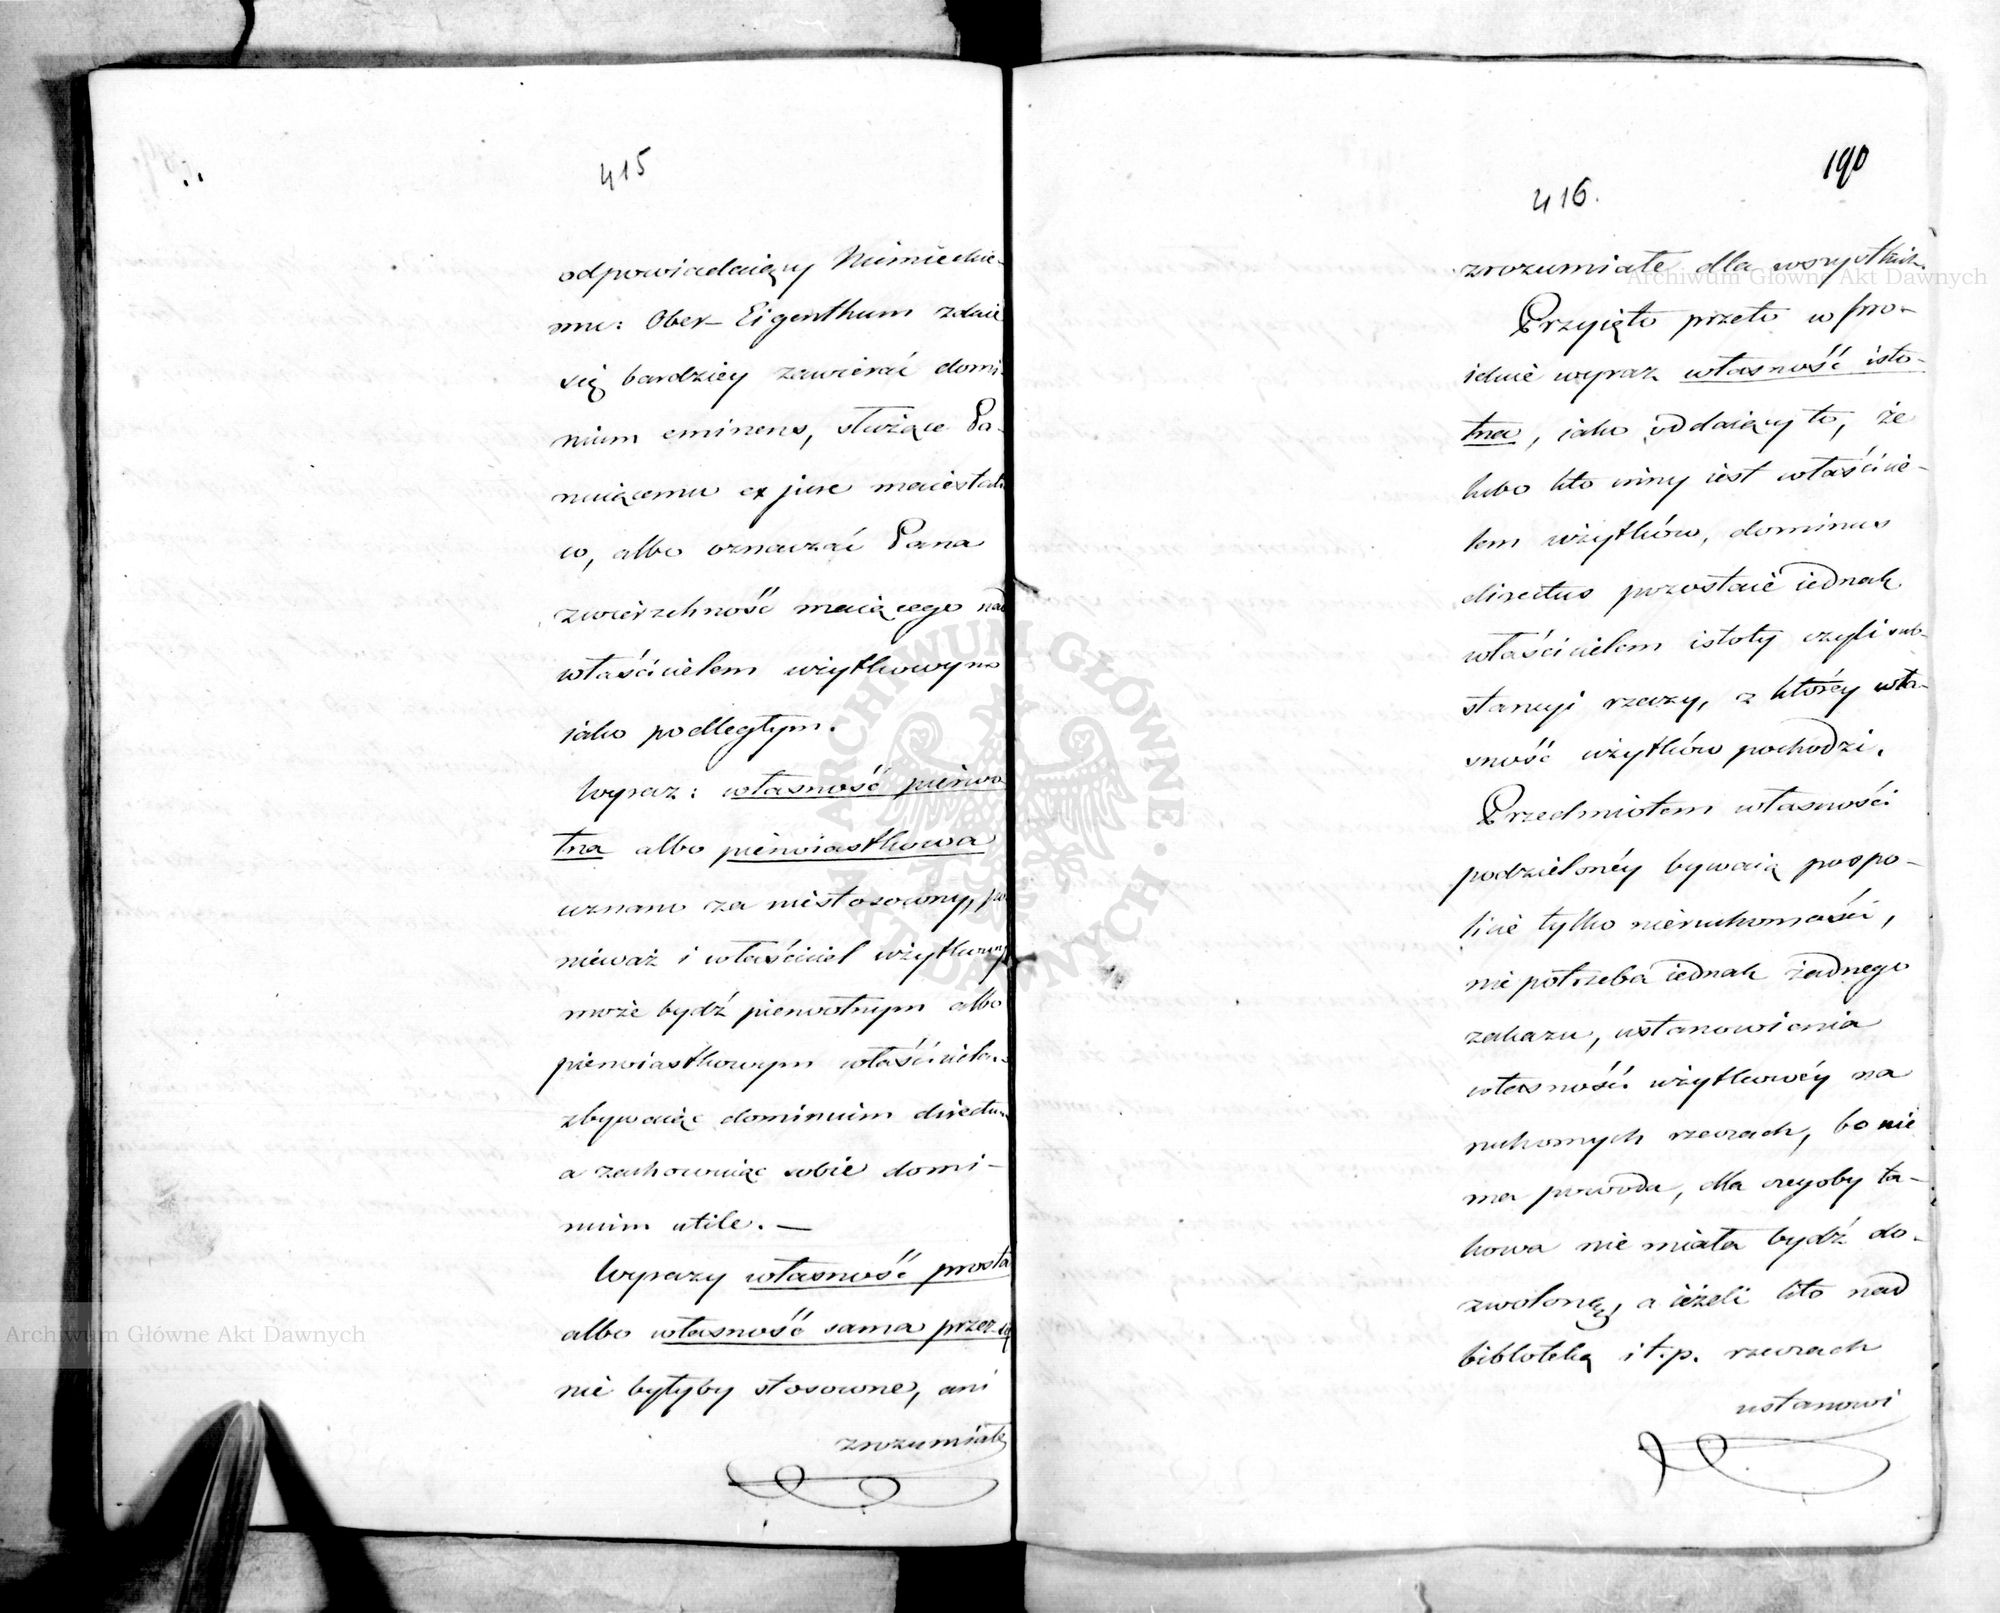 415
odpowiadaiący Niemieckie-
mu: Ober-Eigenthum zdaie
się bardziey zawierać domi-
nium eminens, służące Pa-
nuiącemu ex jure maiestati-
co, albo oznaczać Pana
zwierzchność maiącego nad
właścicielem użytkowym
iako podległym.
Wyraz: własność pierwo
tna albo pierwiastkowa
uznano za niestosowny, po
nieważ i właściciel użytkowy
może bydź pierwotnym albo
pierwiastkowym właścicielem
zbywaiąc dominium directum
a zachowuiąc sobie domi-
nium utile. —
Wyrazy własność prosta
albo własność sama przez się
nie byłyby stosowne, ani
zrozumiałe
190
416.
zrozumiałe dla wszystkich.
Przyięto przeto w pro-
iekcie wyraz własność isto-
tna, iako oddaiący to, że
lubo kto inny iest właścicie-
lem użytków, dominus
directus pozostaie iednak
właścicielem istoty czyli sub-
stancyi rzeczy, z któréy wła-
sność użytków pochodzi.
Przedmiotem własności
podzielnéy bywaią pospo-
licie tylko nieruchomości,
nie potrzeba iednak żadnego
zakazu, ustanowienia
własności użytkowéy na
ruchomych rzeczach, bo nie
ma powodu, dla czegoby ta-
kowa nie miała bydź do-
zwoloną, a ieżeli kto nad
biblioteką i t. p. rzeczach
ustanowi
Archiwum Główne Akt Dawnych
Archiwum Główne Akt Dawnych
ARCHIWUM GŁÓWNE · AKT DAWNYCH ·